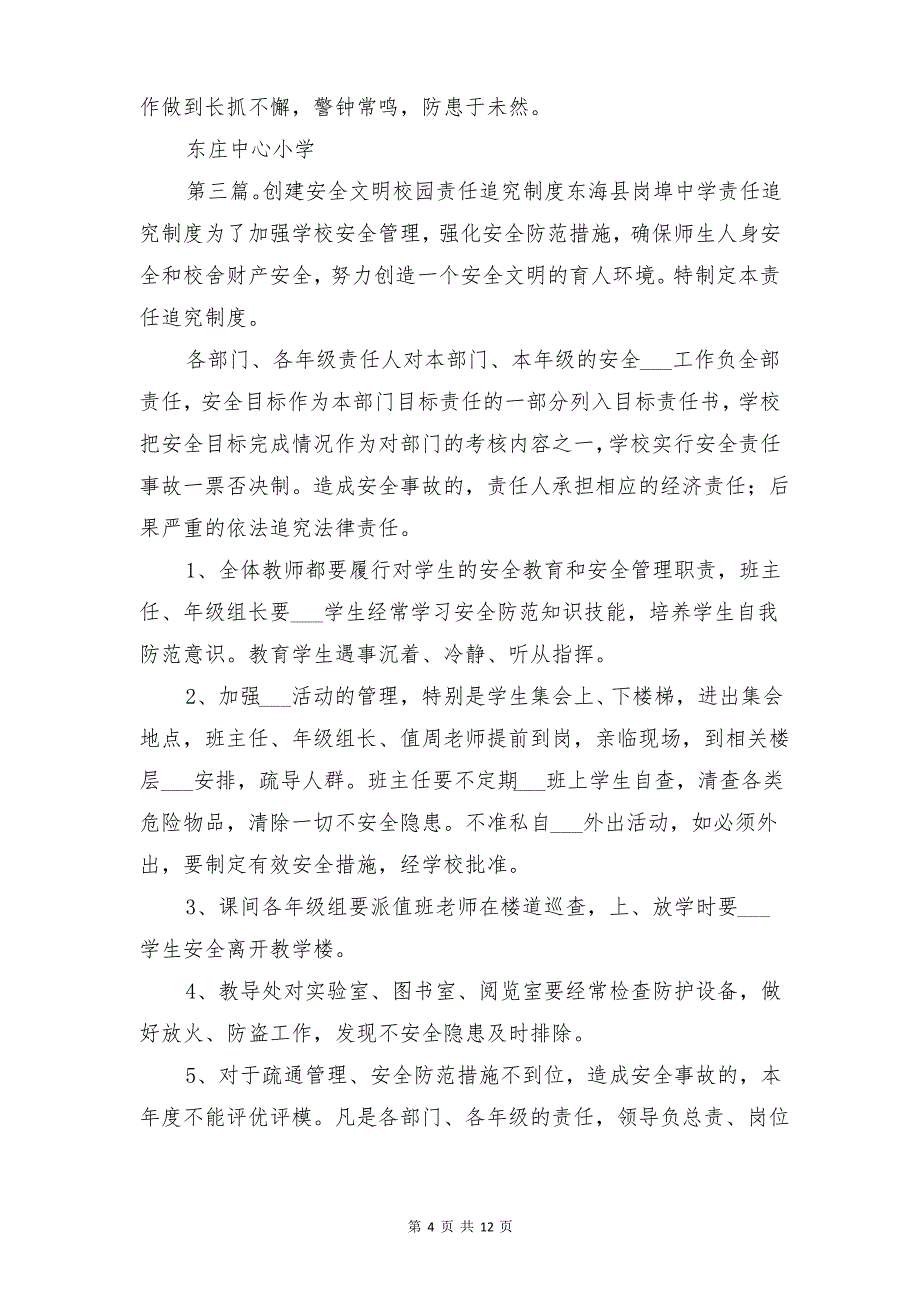 作做到长抓不懈，警钟常鸣，防患于未然。
东庄中心小学
第三篇。创建安全文明校园责任追究制度东海县岗埠中学责任追
究制度为了加强学校安全管理，强化安全防范措施，确保师生人身安
全和校舍财产安全，努力创造一个安全文明的育人环境。特制定本责
任追究制度。
各部门、各年级责任人对本部门、本年级的安全___工作负全部
责任，安全目标作为本部门目标责任的一部分列入目标责任书，学校
把安全目标完成情况作为对部门的考核内容之一，学校实行安全责任
事故一票否决制。造成安全事故的，责任人承担相应的经济责任；后
果严重的依法追究法律责任。
1、全体教师都要履行对学生的安全教育和安全管理职责，班主
任、年级组长要___学生经常学习安全防范知识技能，培养学生自我
防范意识。教育学生遇事沉着、冷静、听从指挥。
2、加强___活动的管理，特别是学生集会上、下楼梯，进出集会
地点，班主任、年级组长、值周老师提前到岗，亲临现场，到相关楼
层___安排，疏导人群。班主任要不定期___班上学生自查，清查各类
危险物品，清除一切不安全隐患。不准私自___外出活动，如必须外
出，要制定有效安全措施，经学校批准。
3、课间各年级组要派值班老师在楼道巡查，上、放学时要___
学生安全离开教学楼。
4、教导处对实验室、图书室、阅览室要经常检查防护设备，做
好放火、防盗工作，发现不安全隐患及时排除。
5、对于疏通管理、安全防范措施不到位，造成安全事故的，本
年度不能评优评模。凡是各部门、各年级的责任，领导负总责、岗位
第 4 页 共 12 页